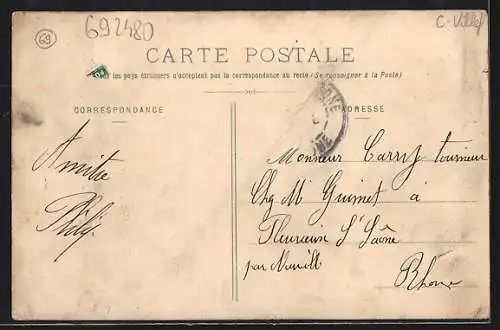 692480
69
C-Villef
CARTE POSTALE
les pays étrangers n'acceptent pas la correspondance au recto (Se renseigner à la Poste)
CORRESPONDANCE
ADRESSE
Amitié
Monsieur Carry tourneur
Chez Mr Guimet à
Fleurieux S/ Saône
par Neuville
Rhône